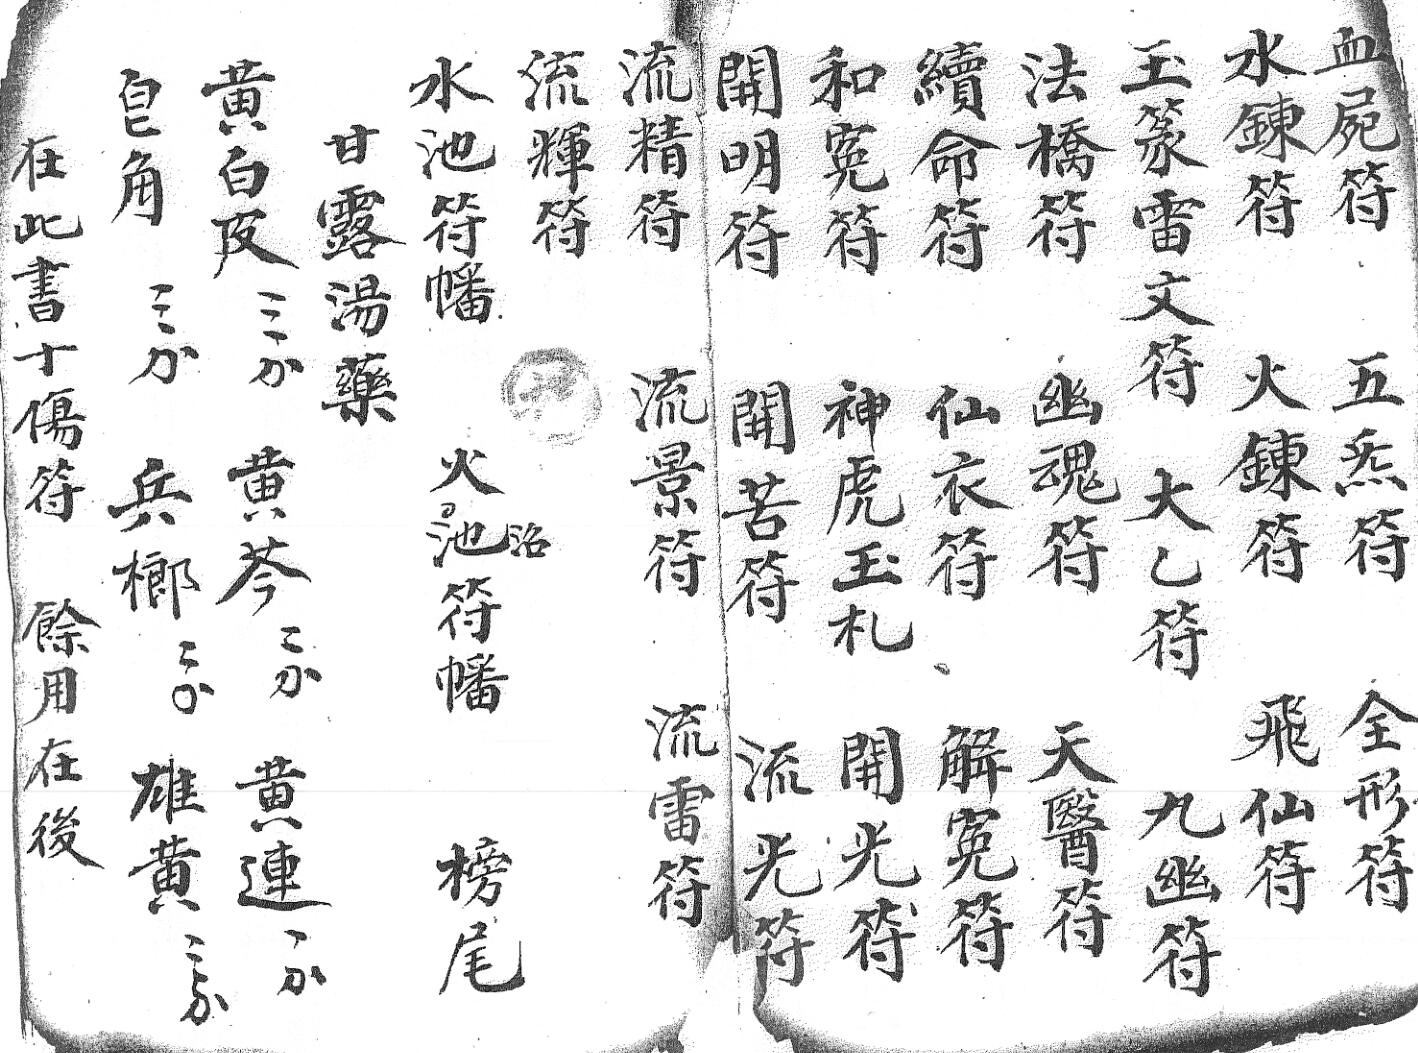 血屍符 五炁符 全形符
水鍊符 火鍊符 飛仙符
玉篆雷文符 大乙符 九幽符
法橋符 幽魂符 天醫符
續命符 仙衣符 解寃符
和寃符 神虎玉札 開光符
開明符 開苦符 流光符
流精符 流景符 流雷符
流輝符
水池符幡 火池沼符幡 榜尾
甘露湯藥
黄白皮 黄芩 黄連
皂角 兵榔 雄黄
在此書十傷符 餘用在後